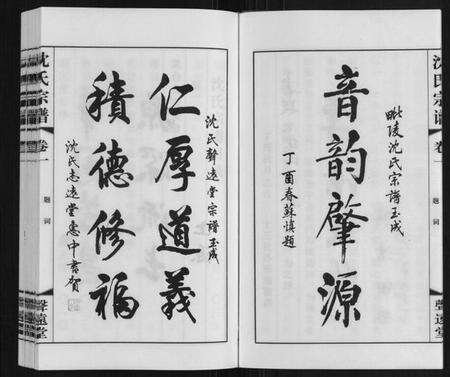 沈氏宗谱
卷一
题词
聲遠堂
毗陵沈氏宗譜玉成
音韵肇源
丁酉春蘇慎題
沈氏聲遠堂宗譜玉成
仁厚道義
積德修福
沈氏志遠堂惠中書賀
沈氏宗谱
卷一
题词